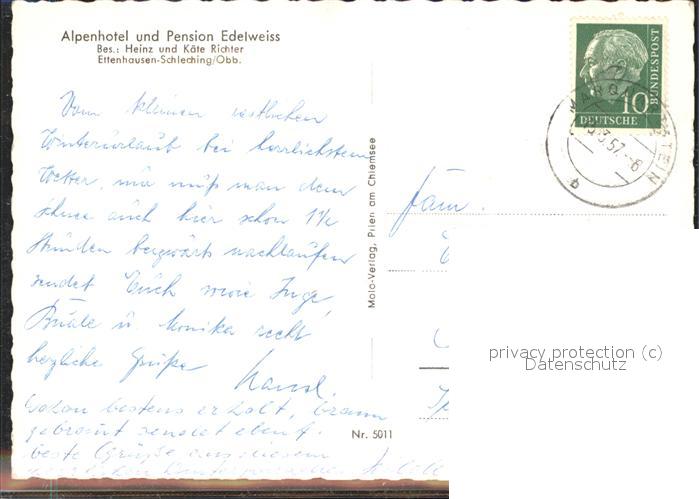 Alpenhotel und Pension Edelweiss
Bes.: Heinz und Käte Richter
Ettenhausen-Schleching/Obb.
Vom kleinen restlichen
Winterurlaub bei herrlichstem
Wetter, nur muß man dem
Schnee auch hier schon 1½
Stunden bergwärts nachlaufen
sendet Euch sowie Inge,
Beate u. Monika recht
herzliche Grüße
Schon bestens erholt, braun
gebrannt sendet ebenf.
beste Grüße aus diesem
Molo-Verlag, Prien am Chiemsee
Nr. 5011
10
DEUTSCHE
BUNDESPOST
MARQUARTSTEIN
3.57.-8
b
Fam.
privacy protection (c)
Datenschutz